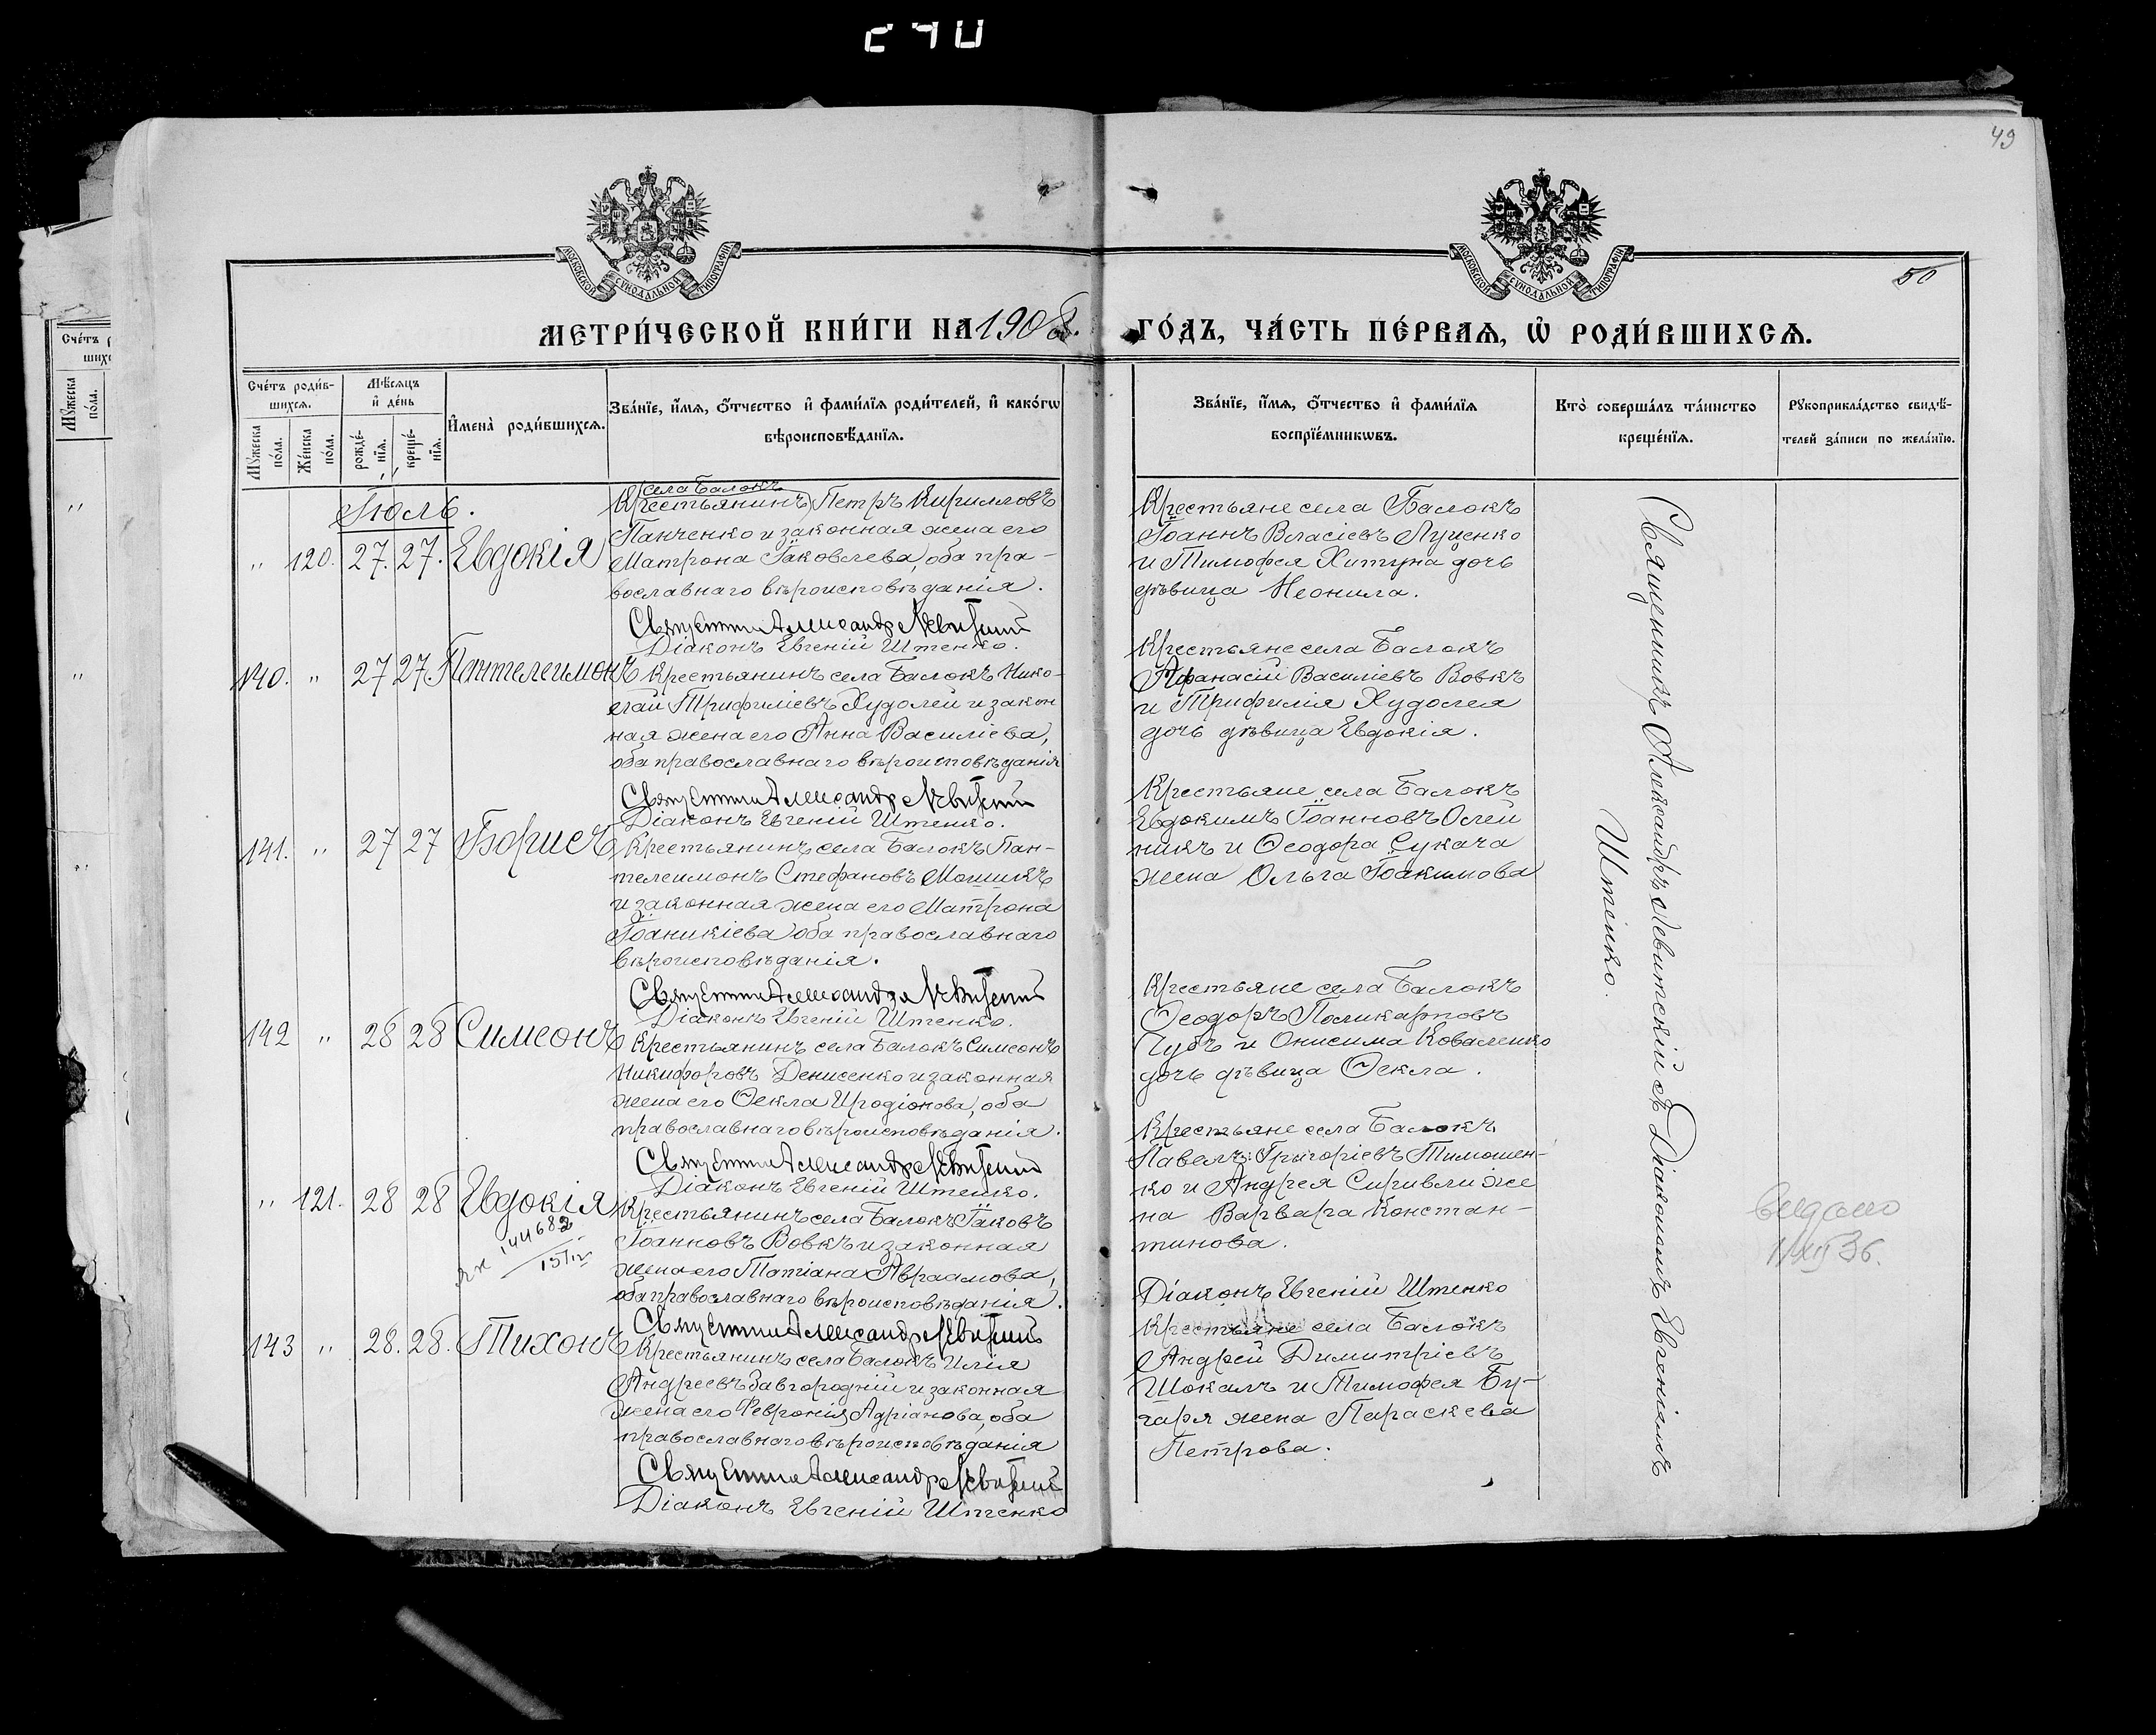 49
50
МОСКОВСКОЙ СѴНОДАЛЬНОЙ ТИПОГРАФІИ
МОСКОВСКОЙ СѴНОДАЛЬНОЙ ТИПОГРАФІИ
МЕТРИ́ЧЕСКОЙ КНИ́ГИ НА 1908. ГО́ДЪ, ЧА́СТЬ ПЕ́РВАѦ, Ѡ҆ РОДИ́ВШИХСѦ.
Сче́тъ роди́в-
шихсѧ.
Мꙋжеска по́ла.
Же́нска по́ла.
Мѣ́сѧцъ
и҆ де́нь
рожде́-
нїѧ.
креще́-
нїѧ.
И҆мена̀ роди́вшихсѧ.
Зва́нїе, и҆́мѧ, ѻ҆́тчество и҆ фамі́лїѧ роди́телей, и҆ како́гѡ
вѣроисповѣ́данїѧ.
Зва́нїе, и҆́мѧ, ѻ҆́тчество и҆ фамі́лїѧ
воспрїе́мникѡвъ.
Кто̀ соверша́лъ та́инство
креще́нїѧ.
Рꙋкоприкла́дство свидѣ́-
телей за́писи по жела́нїю.
Іюль.
" 120. 27. 27. Евдокія
села Балокъ
Крестьянинъ Петръ Кирилловъ
Панченко и законная жена его
Матрона Іаковлева, оба пра-
вославнаго вѣроисповѣданія.
Священникъ Александръ Левитскій
Діаконъ Евгеній Штенко.
Крестьяне села Балокъ
Іоаннъ Власіевъ Луценко
и Тимофея Хитуна дочь
дѣвица Неонила.
140. " 27 27. Пантелеимонъ
Крестьянинъ села Балокъ Нико-
лай Трифиліевъ Худолей и закон
ная жена его Анна Василіева,
оба православнаго вѣроисповѣданія
Священникъ Александръ Левитскій
Діаконъ Евгеній Штенко.
Крестьяне села Балокъ
Афанасій Василіевъ Вовкъ
и Трифилія Худолея
дочь дѣвица Евдокія.
141. " 27 27 Борисъ
Крестьянинъ села Балокъ Пан-
телеимонъ Стефановъ Мошикъ
и законная жена его Матрона
Іоаникіева оба православнаго
вѣроисповѣданія.
Священникъ Александръ Левитскій
Діаконъ Евгеній Штенко.
Крестьяне села Балокъ
Евдокимъ Іоанновъ Олей
никъ и Ѳеодора Сукача
жена Ольга Іоакимова
142 " 28 28 Симеонъ
Крестьянинъ села Балокъ Симеонъ
Никифоровъ Денисенко и законная
жена его Ѳекла Иродіонова, оба
православнаго вѣроисповѣданія.
Священникъ Александръ Левитскій
Діаконъ Евгеній Штенко.
Крестьяне села Балокъ
Ѳеодоръ Поликарповъ
Чубъ и Онисима Коваленко
дочь дѣвица Ѳекла.
" 121. 28 28 Евдокія
144682
Крестьянинъ села Балокъ Іаковъ
Іоанновъ Вовкъ и законная
жена его Татіана Авраамова,
оба православнаго вѣроисповѣданія.
Священникъ Александръ Левитскій
Крестьяне села Балокъ
Павелъ Григоріевъ Тимошен-
ко и Андрея Сиривли же
на Варвара Констан-
тинова.
Діаконъ Евгеній Штенко
видано
1/XII 36.
143 " 28. 28. Тихонъ
Крестьянинъ села Балокъ Илія
Андреевъ Завгородній и законная
жена его Февронія Адріанова, оба
православнаго вѣроисповѣданія
Священникъ Александръ Левитскій
Діаконъ Евгеній Штенко
Крестьяне села Балокъ
Андрей Димитріевъ
Шокалъ и Тимофея Бу-
чаря жена Параскева
Петрова.
Священникъ Александръ Левитскій съ Діакономъ Евгеніемъ
Штенко.